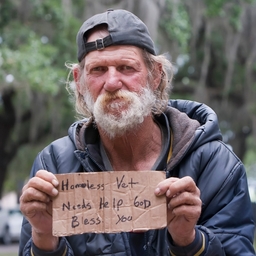 Homeless Vet
Needs Help God
Bless You